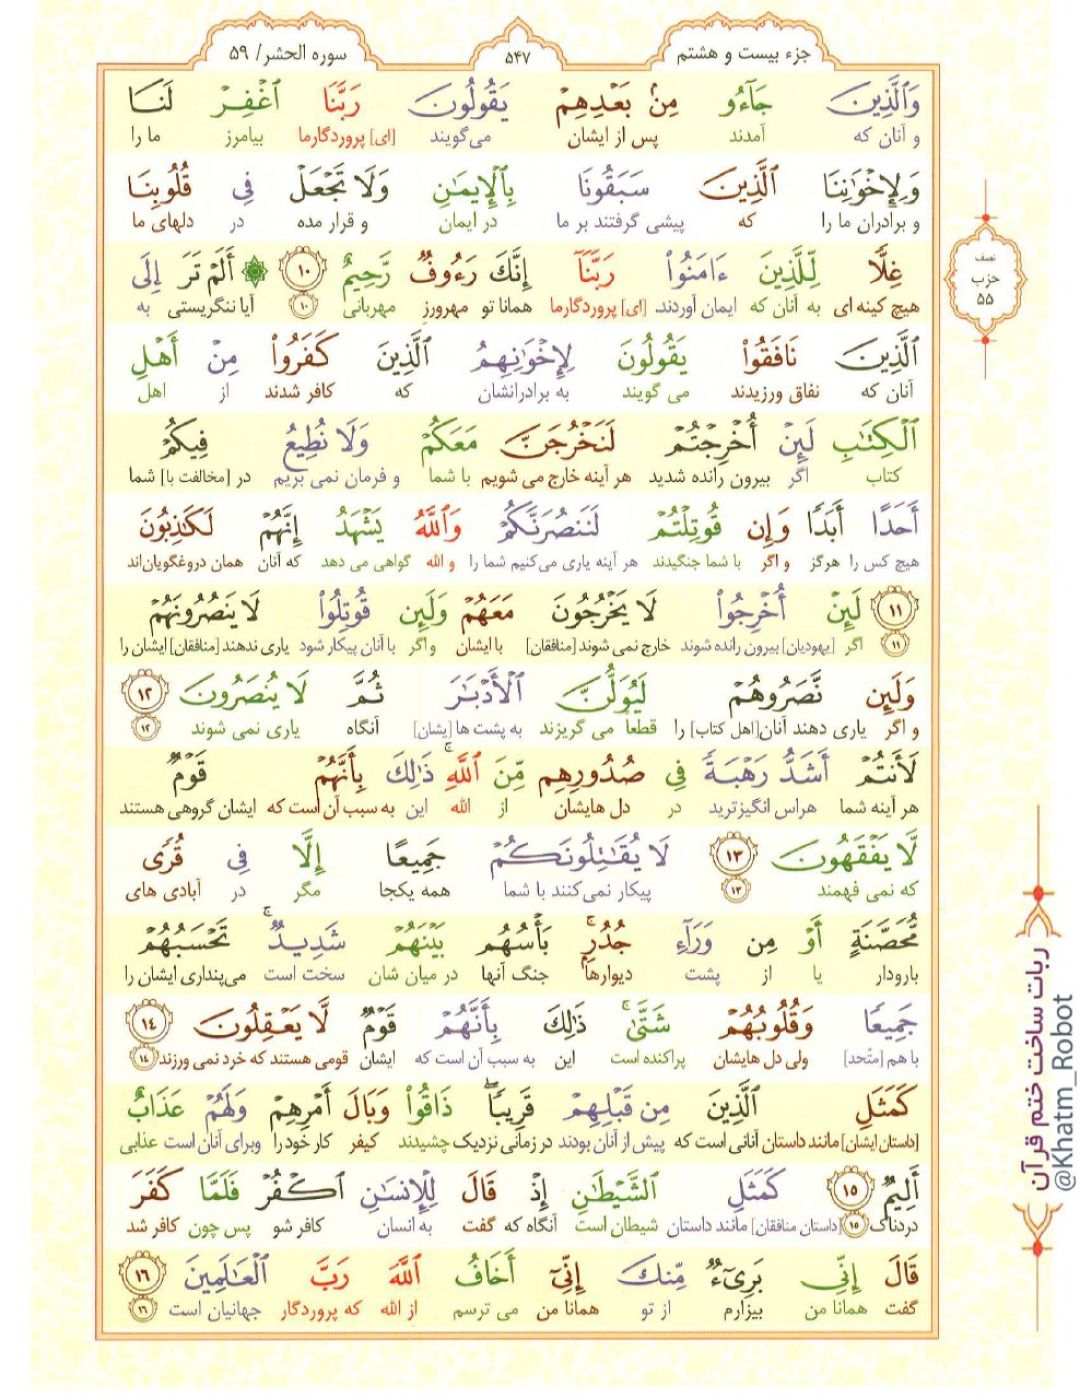 جزء بیست و هشتم
۵۴۷
سوره الحشر/ ۵۹
وَٱلَّذِينَ جَآءُو مِنۢ بَعْدِهِمْ يَقُولُونَ رَبَّنَا ٱغْفِرْ لَنَا
و آنان که آمدند پس از ایشان می‌گویند [ای] پروردگارما بیامرز ما را
وَلِإِخْوَٰنِنَا ٱلَّذِينَ سَبَقُونَا بِٱلْإِيمَٰنِ وَلَا تَجْعَلْ فِى قُلُوبِنَا
و برادران ما را که پیشی گرفتند بر ما در ایمان و قرار مده در دلهای ما
غِلًّا لِّلَّذِينَ ءَامَنُوا۟ رَبَّنَآ إِنَّكَ رَءُوفٌ رَّحِيمٌ ١٠ ۞ أَلَمْ تَرَ إِلَى
هیچ کینه ای به آنان که ایمان آوردند. [ای] پروردگارما همانا تو مهرورز مهربانی ۱۰ آیا ننگریستی به
نصف
حزب
۵۵
ٱلَّذِينَ نَافَقُوا۟ يَقُولُونَ لِإِخْوَٰنِهِمُ ٱلَّذِينَ كَفَرُوا۟ مِنْ أَهْلِ
آنان که نفاق ورزیدند می گویند به برادرانشان که کافر شدند از اهل
ٱلْكِتَٰبِ لَئِنْ أُخْرِجْتُمْ لَنَخْرُجَنَّ مَعَكُمْ وَلَا نُطِيعُ فِيكُمْ
کتاب اگر بیرون رانده شدید هر آینه خارج می شویم با شما و فرمان نمی بریم در [مخالفت با] شما
أَحَدًا أَبَدًا وَإِن قُوتِلْتُمْ لَنَنصُرَنَّكُمْ وَٱللَّهُ يَشْهَدُ إِنَّهُمْ لَكَٰذِبُونَ
هیچ کس را هرگز و اگر با شما جنگیدند هر آینه یاری می‌کنیم شما را و الله گواهی می دهد که آنان همان دروغگویان‌اند
١١ لَئِنْ أُخْرِجُوا۟ لَا يَخْرُجُونَ مَعَهُمْ وَلَئِن قُوتِلُوا۟ لَا يَنصُرُونَهُمْ
۱۱ اگر [یهودیان] بیرون رانده شوند خارج نمی شوند [منافقان] با ایشان و اگر با آنان پیکار شود یاری ندهند [منافقان] ایشان را
وَلَئِن نَّصَرُوهُمْ لَيُوَلُّنَّ ٱلْأَدْبَٰرَ ثُمَّ لَا يُنصَرُونَ ١٢
و اگر یاری دهند آنان [اهل کتاب] را قطعاً می گریزند به پشت ها [یشان] آنگاه یاری نمی شوند ۱۲
لَأَنتُمْ أَشَدُّ رَهْبَةً فِى صُدُورِهِم مِّنَ ٱللَّهِ ۚ ذَٰلِكَ بِأَنَّهُمْ قَوْمٌ
هر آینه شما هراس انگیزترید در دل هایشان از الله این به سبب آن است که ایشان گروهی هستند
لَّا يَفْقَهُونَ ١٣ لَا يُقَٰتِلُونَكُمْ جَمِيعًا إِلَّا فِى قُرًى
که نمی فهمند ۱۳ پیکار نمی‌کنند با شما همه یکجا مگر در آبادی های
مُّحَصَّنَةٍ أَوْ مِن وَرَآءِ جُدُرٍۭ ۚ بَأْسُهُم بَيْنَهُمْ شَدِيدٌ ۚ تَحْسَبُهُمْ
بارودار یا از پشت دیوارها جنگ آنها در میان شان سخت است می‌پنداری ایشان را
جَمِيعًا وَقُلُوبُهُمْ شَتَّىٰ ۚ ذَٰلِكَ بِأَنَّهُمْ قَوْمٌ لَّا يَعْقِلُونَ ١٤
با هم [متّحد] ولی دل هایشان پراکنده است این به سبب آن است که ایشان قومی هستند که خرد نمی ورزند ۱۴
كَمَثَلِ ٱلَّذِينَ مِن قَبْلِهِمْ قَرِيبًا ۖ ذَاقُوا۟ وَبَالَ أَمْرِهِمْ وَلَهُمْ عَذَابٌ
[داستان ایشان] مانند داستان آنانی است که پیش از آنان بودند در زمانی نزدیک چشیدند کیفر کار خود را وبرای آنان است عذابی
أَلِيمٌ ١٥ كَمَثَلِ ٱلشَّيْطَٰنِ إِذْ قَالَ لِلْإِنسَٰنِ ٱكْفُرْ فَلَمَّا كَفَرَ
دردناک ۱۵ [داستان منافقان] مانند داستان شیطان است آنگاه که گفت به انسان کافر شو پس چون کافر شد
قَالَ إِنِّى بَرِىٓءٌ مِّنكَ إِنِّىٓ أَخَافُ ٱللَّهَ رَبَّ ٱلْعَٰلَمِينَ ١٦
گفت همانا من بیزارم از تو همانا من می ترسم از الله که پروردگار جهانیان است ۱۶
ربات ساخت ختم قرآن
@Khatm_Robot